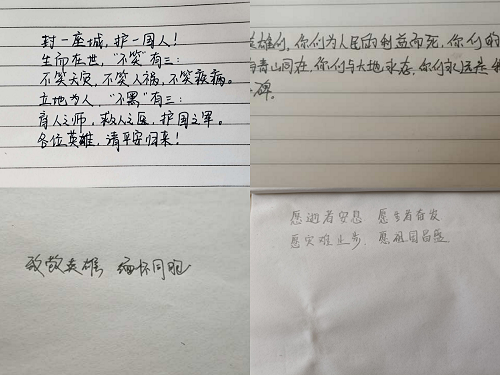 封一座城，护一国人！
生而在世，"不笑"有三：
不笑天灾，不笑人祸，不笑疾病。
立地为人，"不黑"有三：
育人之师，救人之医，护国之军。
各位英雄，请平安归来！
英雄们，你们为人民的利益而死，你们的
与青山同在，你们与大地永存，你们永远是
碑。
致敬英雄 缅怀同胞
愿逝者安息 愿生者奋发
愿灾难止步，愿祖国昌盛